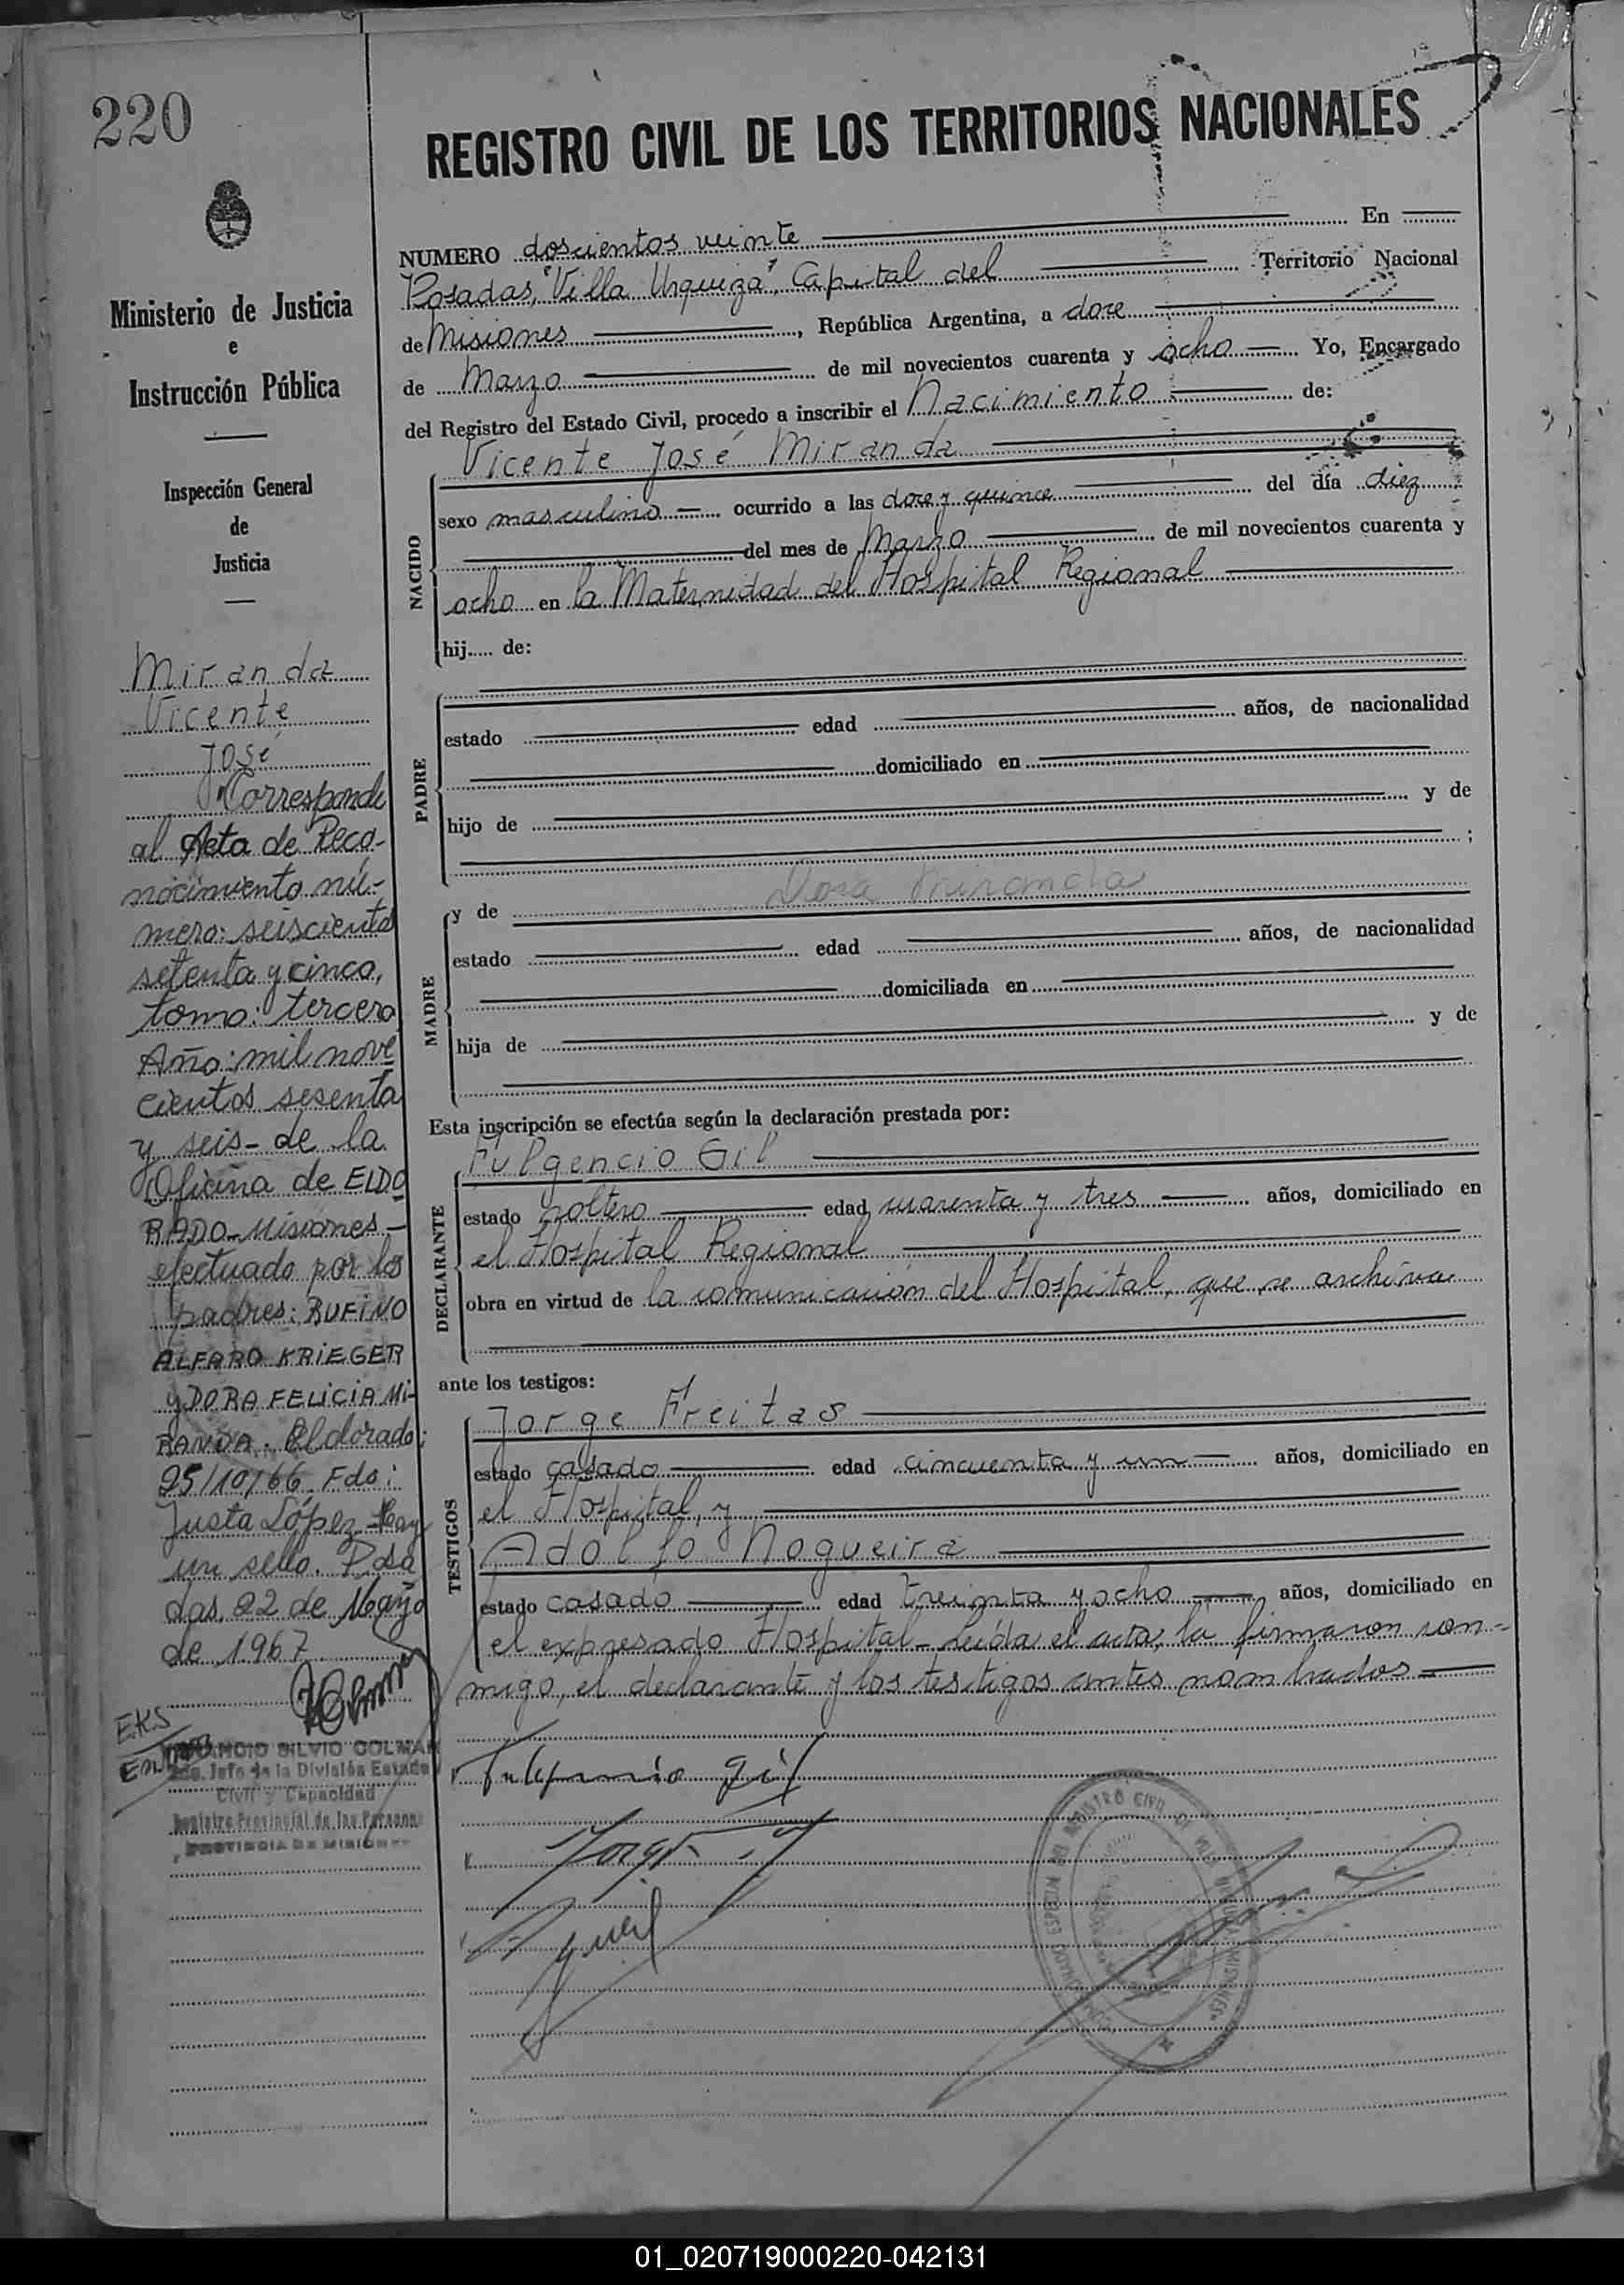 220
REGISTRO CIVIL DE LOS TERRITORIOS NACIONALES
Ministerio de Justicia
e
Instrucción Pública
Inspección General
de
Justicia
Miranda
Vicente
José
Corresponde
al Acta de Reco-
nocimiento nú-
mero: seiscientos
setenta y cinco,
tomo: tercero
Año: mil nove
cientos sesenta
y seis - de la
Oficina de ELDO
RADO - Misiones -
efectuado por los
padres: RUFINO
ALFARO KRIEGER
y DORA FELICIA MI-
RANDA. Eldorado:
25/10/66. Fdo:
Justa López - Hay
un sello. Posa
das, 22 de Mayo
de 1967
E.K.S
SILVIO COLMAN
Jefe de la División Estado
Civil y Capacidad
Registro Provincial de las Personas
PROVINCIA DE MISIONES
NUMERO doscientos veinte En
Posadas, "Villa Urquiza", Capital del Territorio Nacional
de Misiones, República Argentina, a doce
de Marzo de mil novecientos cuarenta y ocho Yo, Encargado
del Registro del Estado Civil, procedo a inscribir el Nacimiento de:
NACIDO
Vicente José Miranda
sexo masculino ocurrido a las doce y quince del día diez
del mes de Marzo de mil novecientos cuarenta y
ocho en la Maternidad del Hospital Regional
hij..... de:
PADRE
estado edad años, de nacionalidad
domiciliado en
hijo de y de
;
MADRE
y de Dora Miranda
estado edad años, de nacionalidad
domiciliada en
hija de y de
Esta inscripción se efectúa según la declaración prestada por:
DECLARANTE
Fulgencio Gil
estado soltero edad cuarenta y tres años, domiciliado en
el Hospital Regional
obra en virtud de la comunicación del Hospital, que se archiva
ante los testigos:
TESTIGOS
Jorge Freitas
estado casado edad cincuenta y un años, domiciliado en
el Hospital, y
Adolfo Nogueira
estado casado edad treinta y ocho años, domiciliado en
el expresado Hospital - Leída el acta, la firmaron con-
migo, el declarante y los testigos antes nombrados
Fulgencio Gil
01_020719000220-042131